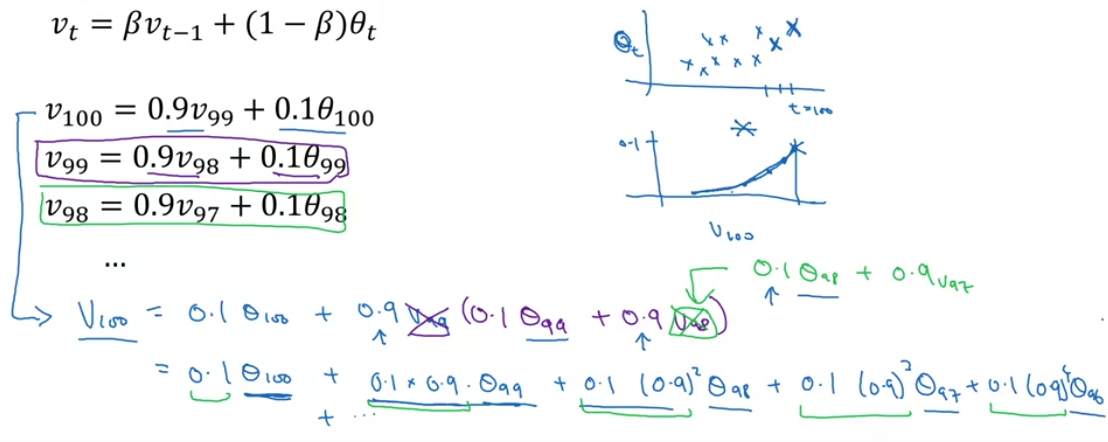 v_t = βv_{t−1} + (1 − β)θ_t
v_100 = 0.9v_99 + 0.1θ_100
v_99 = 0.9v_98 + 0.1θ_99
v_98 = 0.9v_97 + 0.1θ_98
...
θ_t
t=100
0.1
V_100
0.1 θ_98 + 0.9 V_97
V_100 = 0.1 θ_100 + 0.9 V_99 (0.1 θ_99 + 0.9 V_98)
= 0.1 θ_100 + 0.1 × 0.9 · θ_99 + 0.1 (0.9)² θ_98 + 0.1 (0.9)³ θ_97 + 0.1 (0.9)⁴ θ_96
+ ...